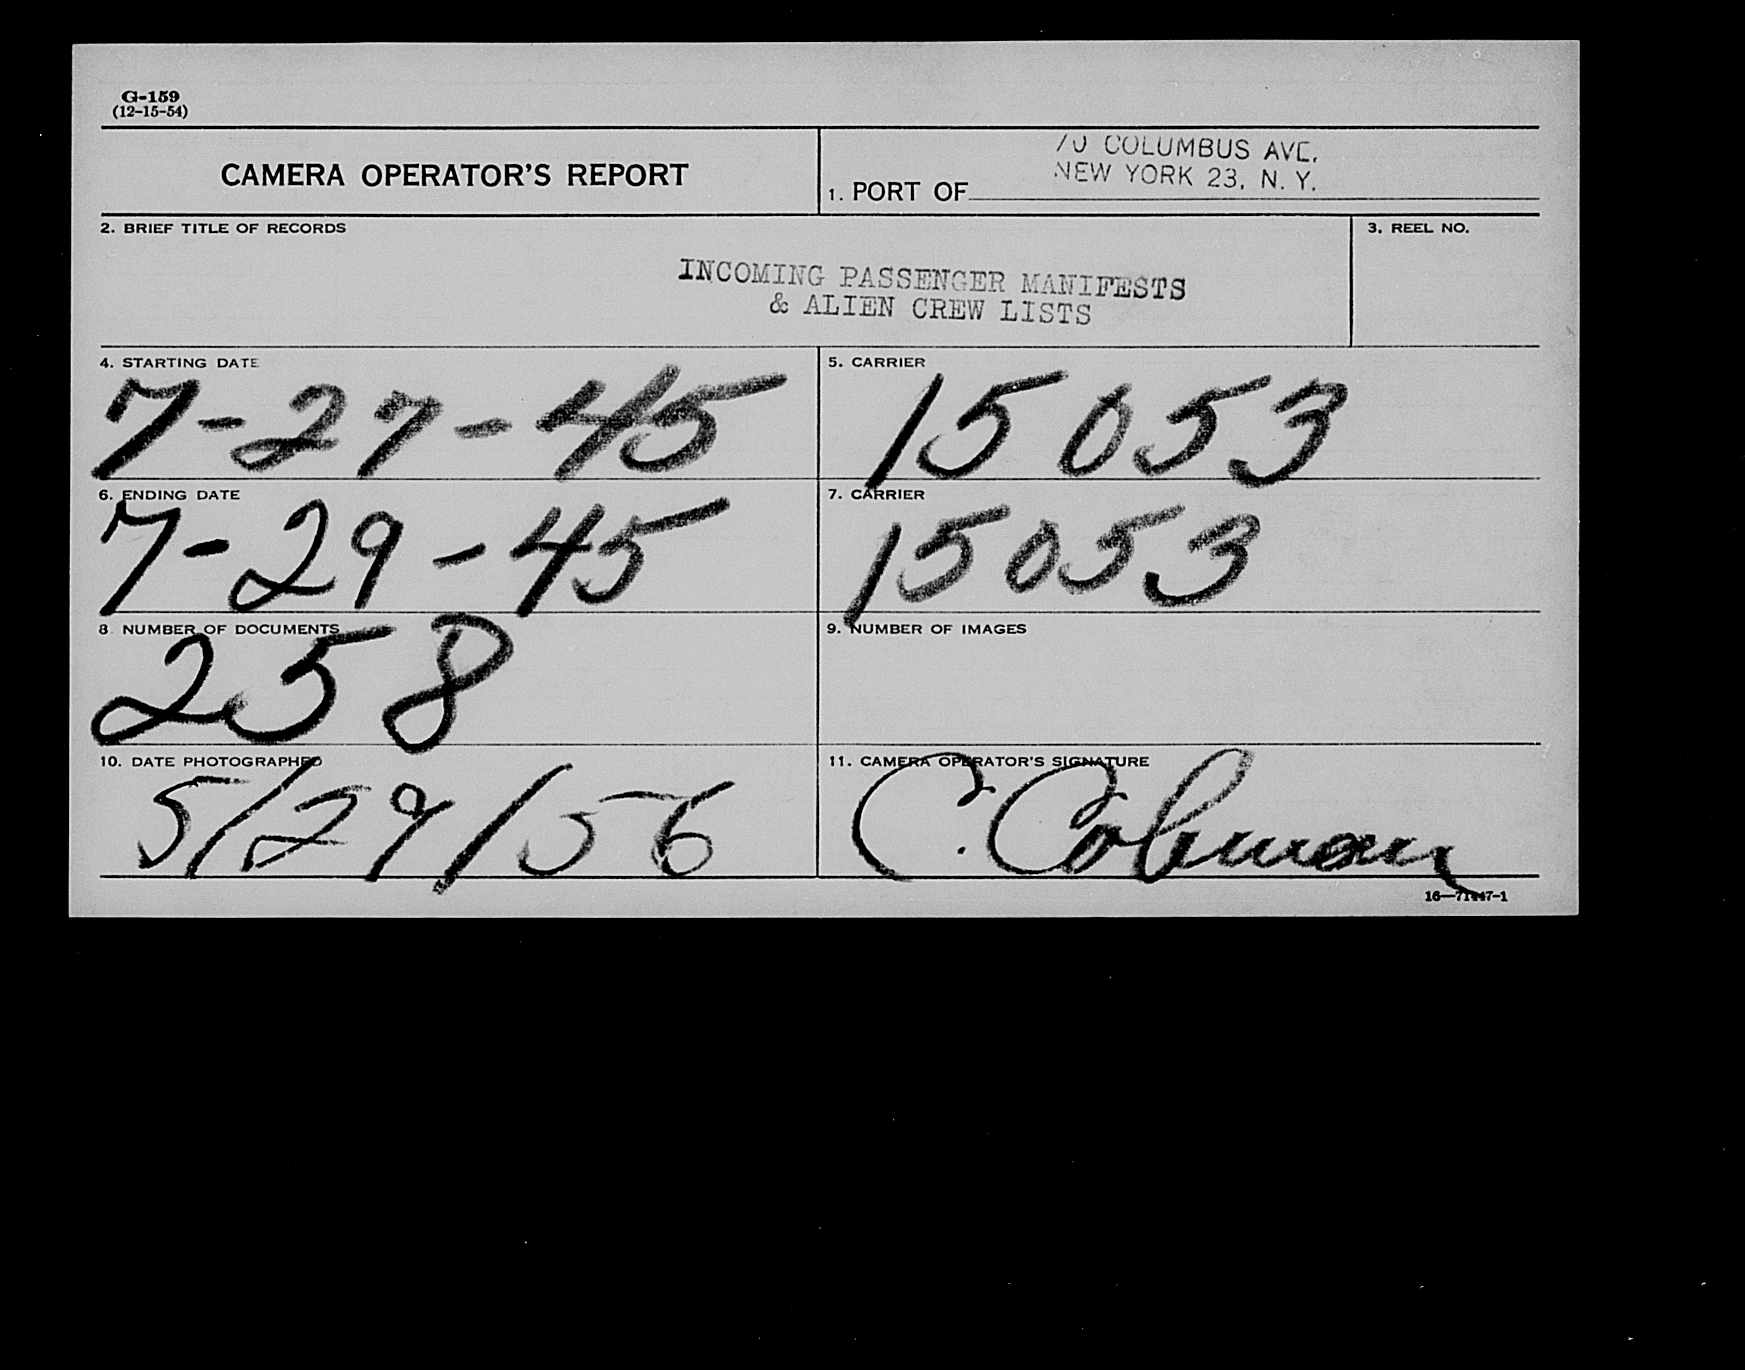 G-159
(12-15-54)
CAMERA OPERATOR'S REPORT
70 COLUMBUS AVE.
NEW YORK 23, N. Y.
1. PORT OF
2. BRIEF TITLE OF RECORDS
3. REEL NO.
INCOMING PASSENGER MANIFESTS
& ALIEN CREW LISTS
4. STARTING DATE
5. CARRIER
7-27-45
15053
6. ENDING DATE
7. CARRIER
7-29-45
15053
8 NUMBER OF DOCUMENTS
9. NUMBER OF IMAGES
258
10. DATE PHOTOGRAPHED
11. CAMERA OPERATOR'S SIGNATURE
5/29/56
C. Coleman
16—71447-1